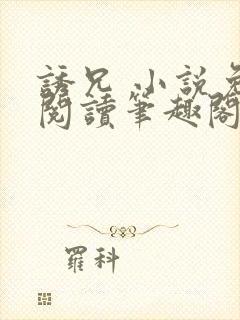 誘兄 小說免
閱讀筆趣閣
羅科